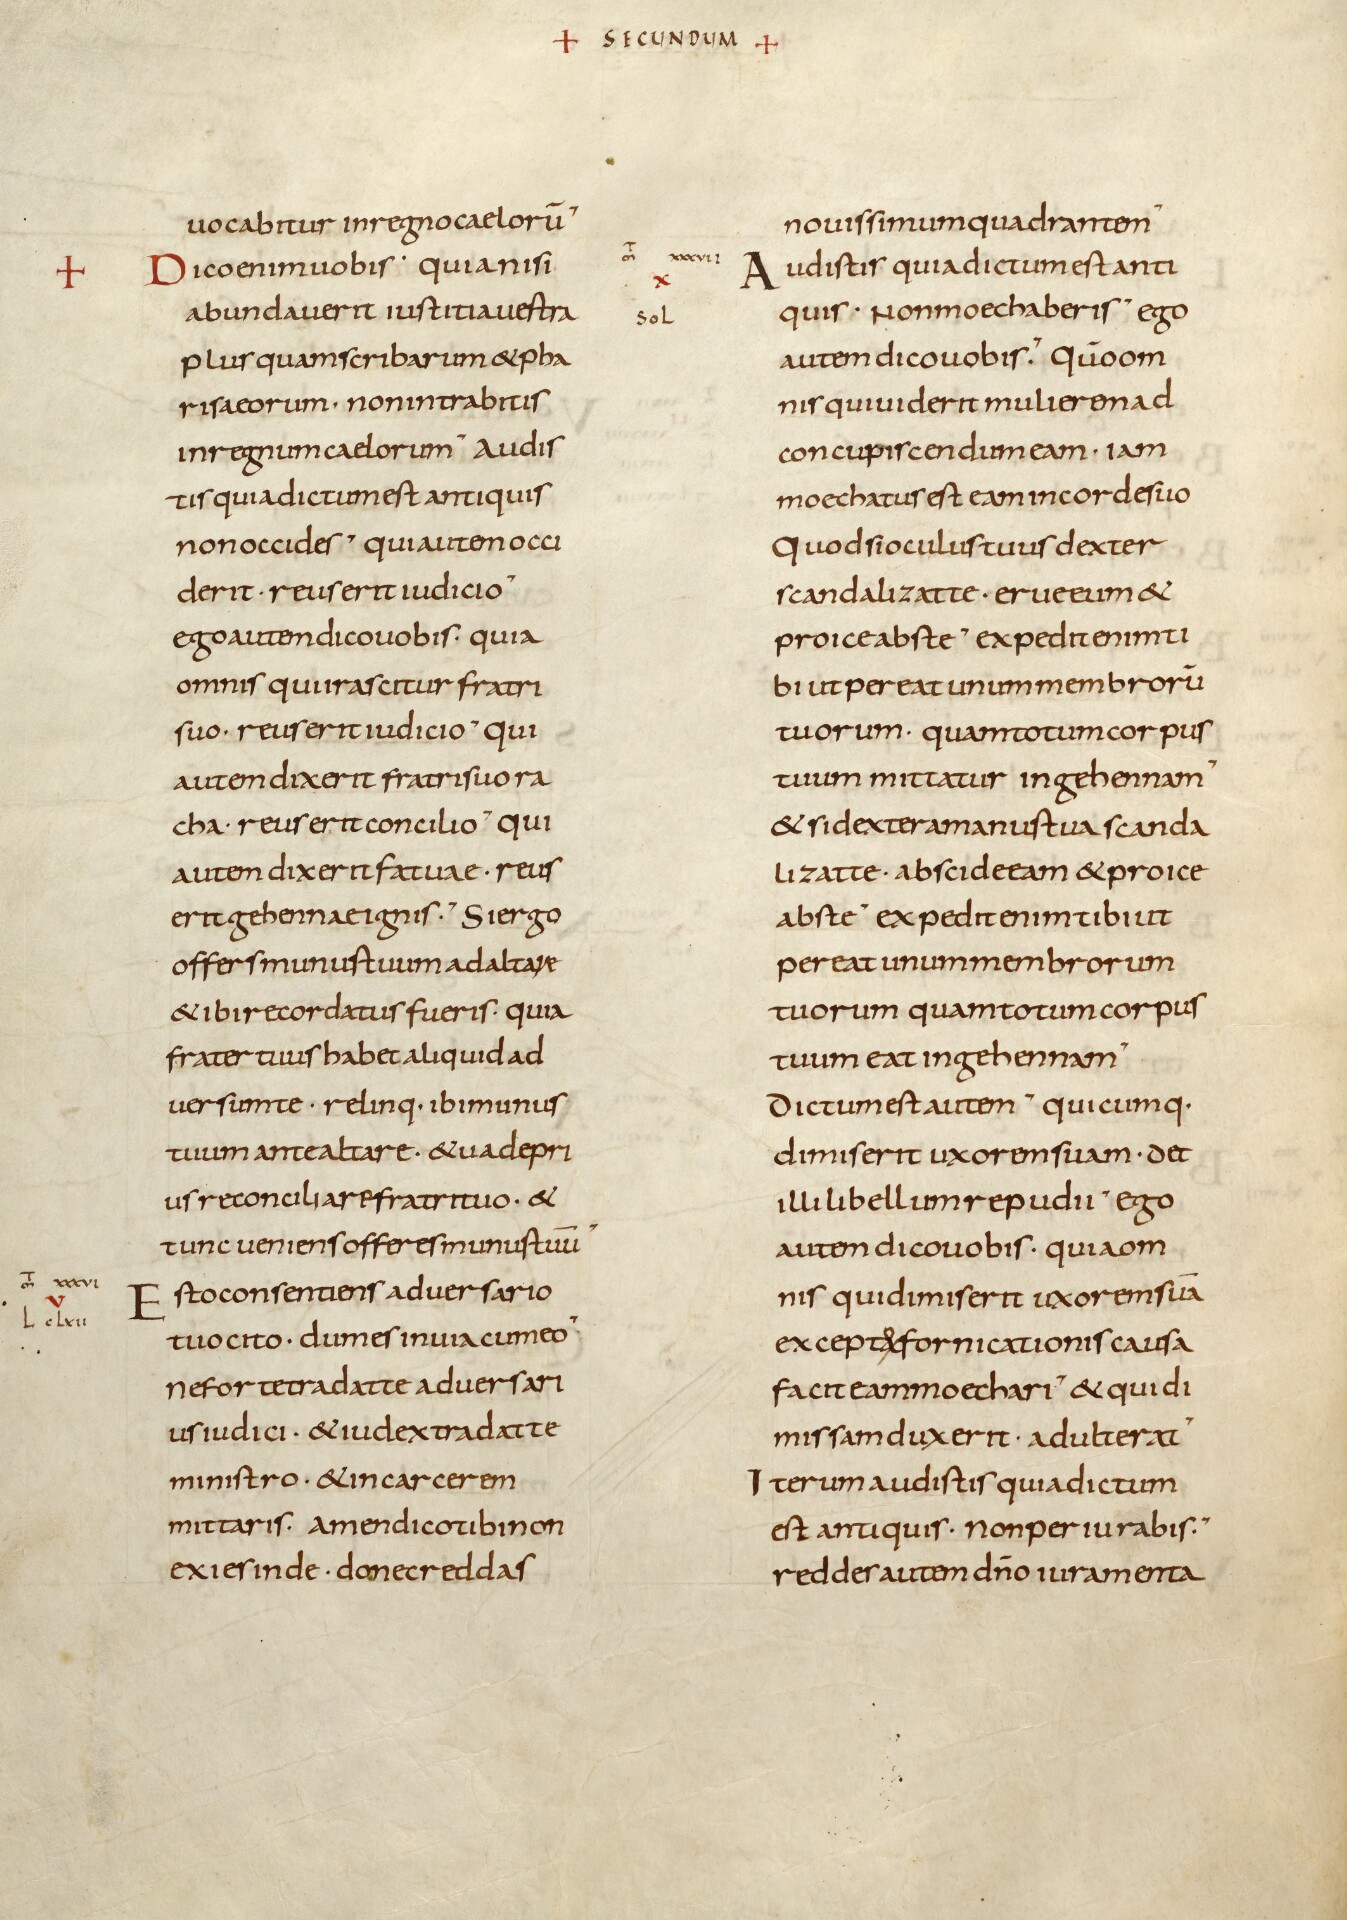 + SECUNDUM +
uocabitur inregnocaelorū
+ Dicoenimuobis · quianisi
abundauerit iustitiauestra
plusquamscribarum &pha
risaeorum · nonintrabitis
inregnumcaelorum Audis
tisquiadictumest antiquis
nonoccides quiautemocci
derit · reuserit iudicio
egoautemdicouobis · quia
omnis quiirascitur fratri
suo · reuserit iudicio Qui
autemdixerit fratrisuo ra
cha · reuserit concilio Qui
autem dixerit fatuae · reus
erit gehennaeignis · Siergo
offersmunustuum adaltare
&ibirecordatus fueris · quia
frater tuus habet aliquid ad
uersumte · relinq· ibimunus
tuum antealtare · &uadepri
usreconciliarefratrituo · &
tunc ueniensofferesmunustuū
Tm xxxvi
v
L clxii
Estoconsentiens aduersario
tuocito · dumesinuiacumeo
Nefortetradatte aduersari
usiudici · &iudextradatte
ministro · &incarcerem
mittaris · Amendicotibinon
exiesinde · donecreddas
nouissimumquadrantem
Tm xxxvii
x
SoL
Audistis quiadictumest anti
quis · Nonmoechaberis ego
autem dicouobis · Qūoom
nisquiuiderit mulieremad
concupiscendumeam · iam
moechatusest eamincordesuo
Quodsioculustuusdexter
scandalizatte · erueeum &
proiceabste expeditenimti
bi utpereatunummembrorū
tuorum · quamtotumcorpus
tuum mittatur ingehennam
& sidexteramanustua scanda
lizatte · abscideeam &proice
abste expeditenimtibiut
pereatunummembrorum
tuorum quamtotumcorpus
tuum eat ingehennam
Dictumestautem quicumq·
dimiserit uxoremsuam · det
illilibellumrepudii ego
autem dicouobis · quiaom
nis quidimiserit uxoremsuā
excepta fornicationiscausa
faciteammoechari & quidi
missamduxerit · adulterat
Iterumaudistisquiadictum
est antiquis · Nonperiurabis ·
reddesautem dn̄o iuramenta